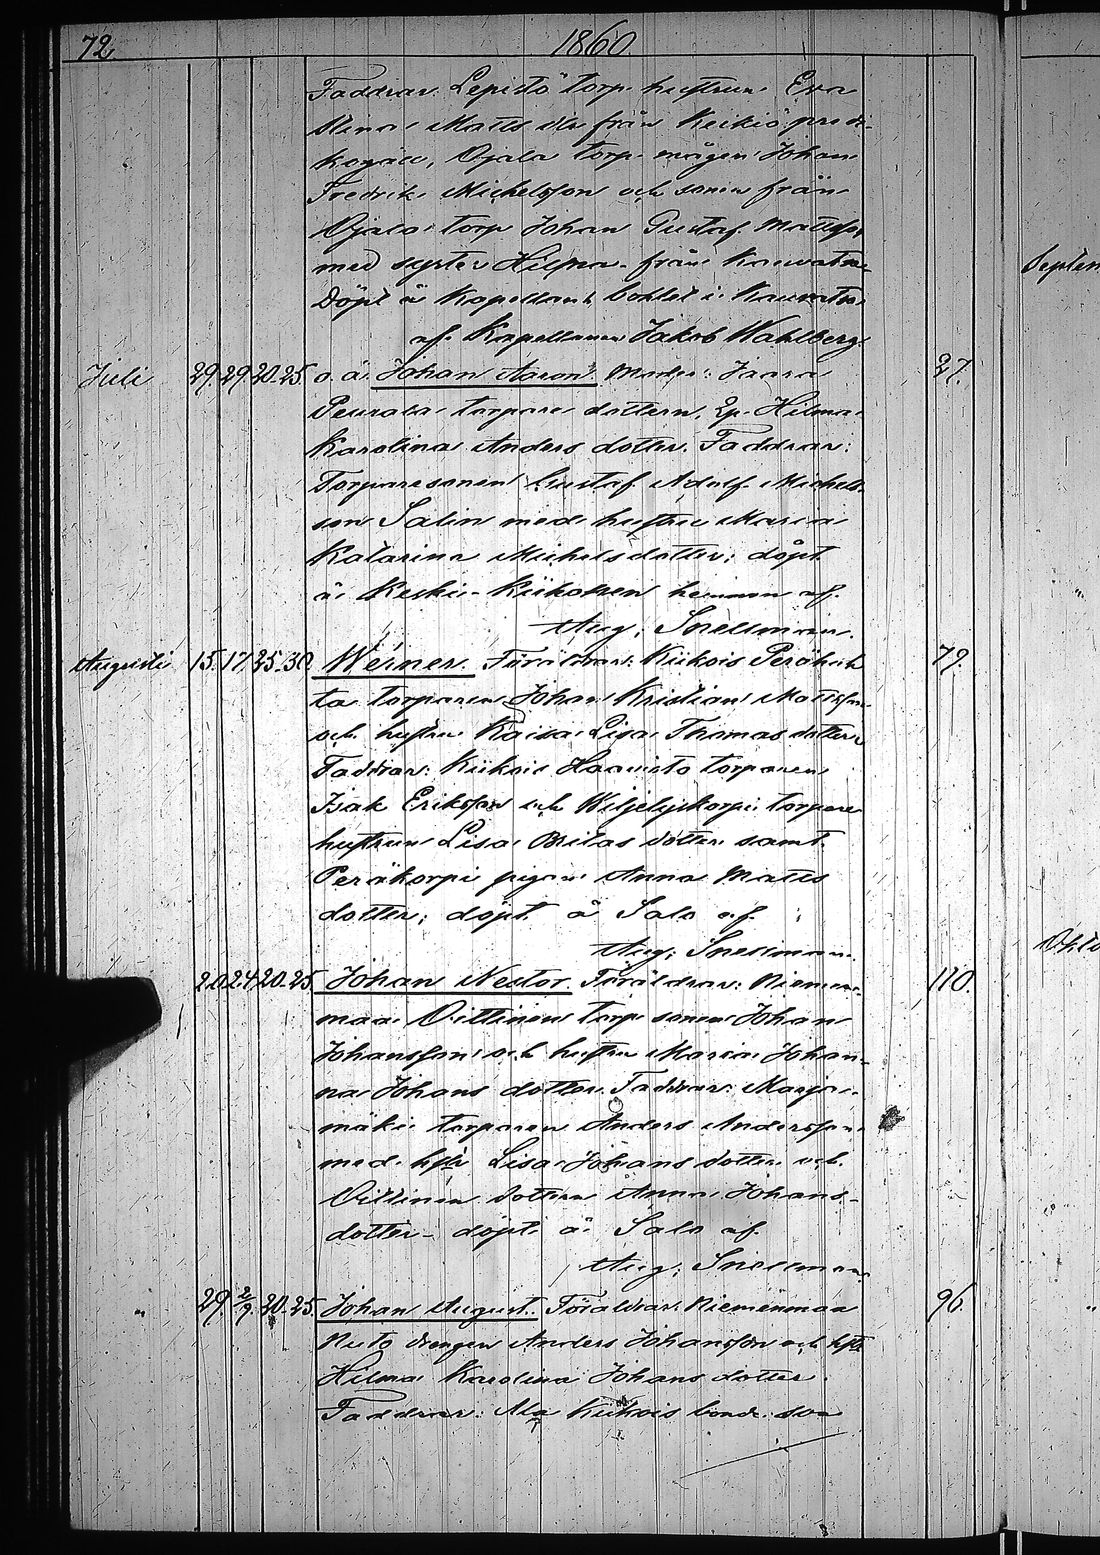 72. 1860.
Faddrar. Lepistö torp. hustrun Eva
Stina Matts dtr från Keikiö
Ojala torp. mågen Johan
Fredrik Michelsson och sonen från
Ojala torp Johan Gustaf Mattss.
med syster Hilma från Kauvatsa
Döpt å Kapellans bohlet i Kauvatsa
af Kapellanen Jakob Wahlberg.
Juli 29. 29. 20-25. o.ä. Johan Aaron. Moder: Jaara 27.
Peurala torpare dottern, Ep. Hilma
Karolina Anders dotter. Faddrar:
Torparesonen Gustaf Adolf Michels-
son Salin med hustru Maria
Katarina Michelsdotter; döpt
å Keski-Kiikoisen hemman af
Aug; Snellman.
Augusti 15. 17. 25-30. Werner. Föräldrar: Kiikois Peräkul-
ta torparen Johan Kristian Mattsson
och hustru Kaisa Lisa Thomas dotter
Faddrar: Kiikois Haavisto torparen
Isak Eriksson och Wiljelyskorpi torpare
hustrun Lisa dotter samt
Peräkorpi pigan Anna Matts
dotter; döpt å Salo af
Aug; Snellman.
20. 24. 20-25. Johan Nestor. Föräldrar: Niemen- 110.
maa Vittinen torp sonen Johan
Johansson och hustru Maria Johan-
na Johans dotter. Faddrar: Marja-
mäki torparen Anders Andersson
med hstr Lisa Johans dotter och
Vittinen dottern Anna Johans-
dotter- döpt å Salo af
Aug; Snellman.
„ 29. 2/9. 20-25. Johan August. Föräldrar: Niemenmaa 96.
drengen Anders Johansson och hstr
Hilma Karolina Johans dotter.
Faddrar: Ala Kiikois bonde son